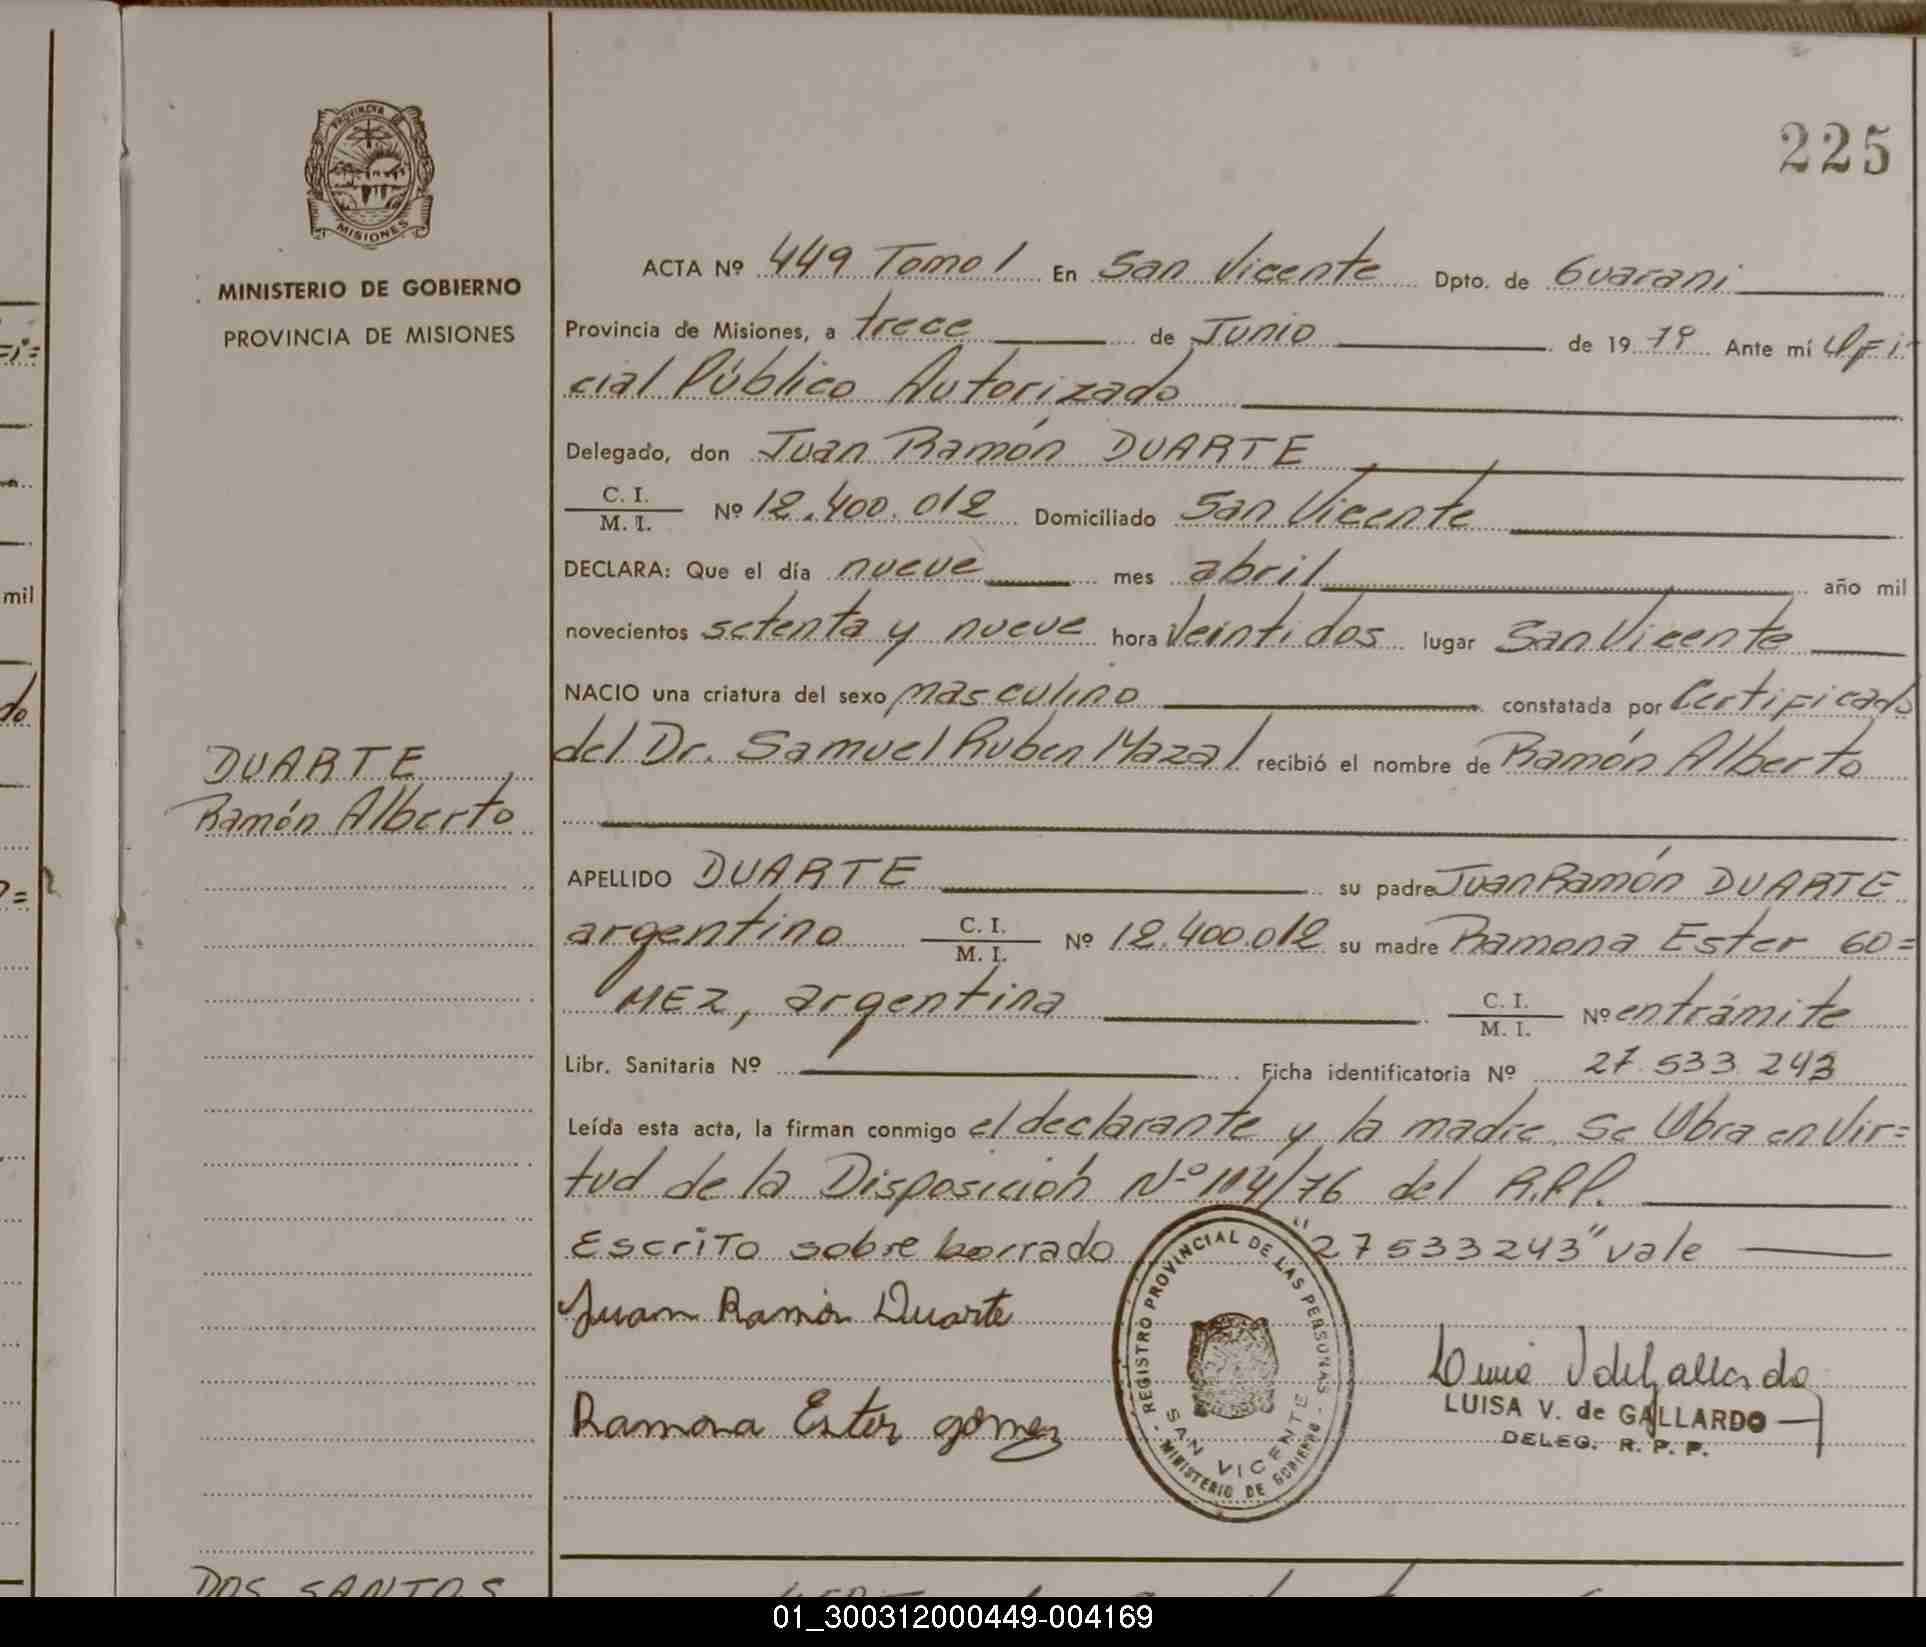 225
PROVINCIA DE
MISIONES
MINISTERIO DE GOBIERNO
PROVINCIA DE MISIONES
DUARTE
Ramón Alberto
ACTA Nº 449 Tomo I En San Vicente Dpto. de Guarani
Provincia de Misiones, a trece de Junio de 1979 Ante mí Ofi-
cial Público Autorizado
Delegado, don Juan Ramón DUARTE
C. I.
M. I. Nº 12.400.012 Domiciliado San Vicente
DECLARA: Que el día nueve mes abril año mil
novecientos setenta y nueve hora Veintidos lugar San Vicente
NACIO una criatura del sexo masculino constatada por Certificado
del Dr. Samuel Ruben Mazal recibió el nombre de Ramón Alberto
APELLIDO DUARTE su padre Juan Ramón DUARTE
argentino C. I.
M. I. Nº 12.400.012 su madre Ramona Ester GO=
MEZ, argentina C. I.
M. I. Nº entrámite
Libr. Sanitaria Nº Ficha identificatoria Nº 27.533.243
Leída esta acta, la firman conmigo el declarante y la madre. Se Obra en Vir=
tud de la Disposición Nº 114/76 del R.P.P.
Escrito sobre borrado "27533243" vale
Juan Ramón Duarte
Ramona Ester gómez
REGISTRO PROVINCIAL DE LAS PERSONAS
SAN VICENTE
MINISTERIO DE GOBIERNO
Luisa V de Gallardo
LUISA V. de GALLARDO
DELEG. R. P. P.
DOS SANTOS
mil
do
01_300312000449-004169